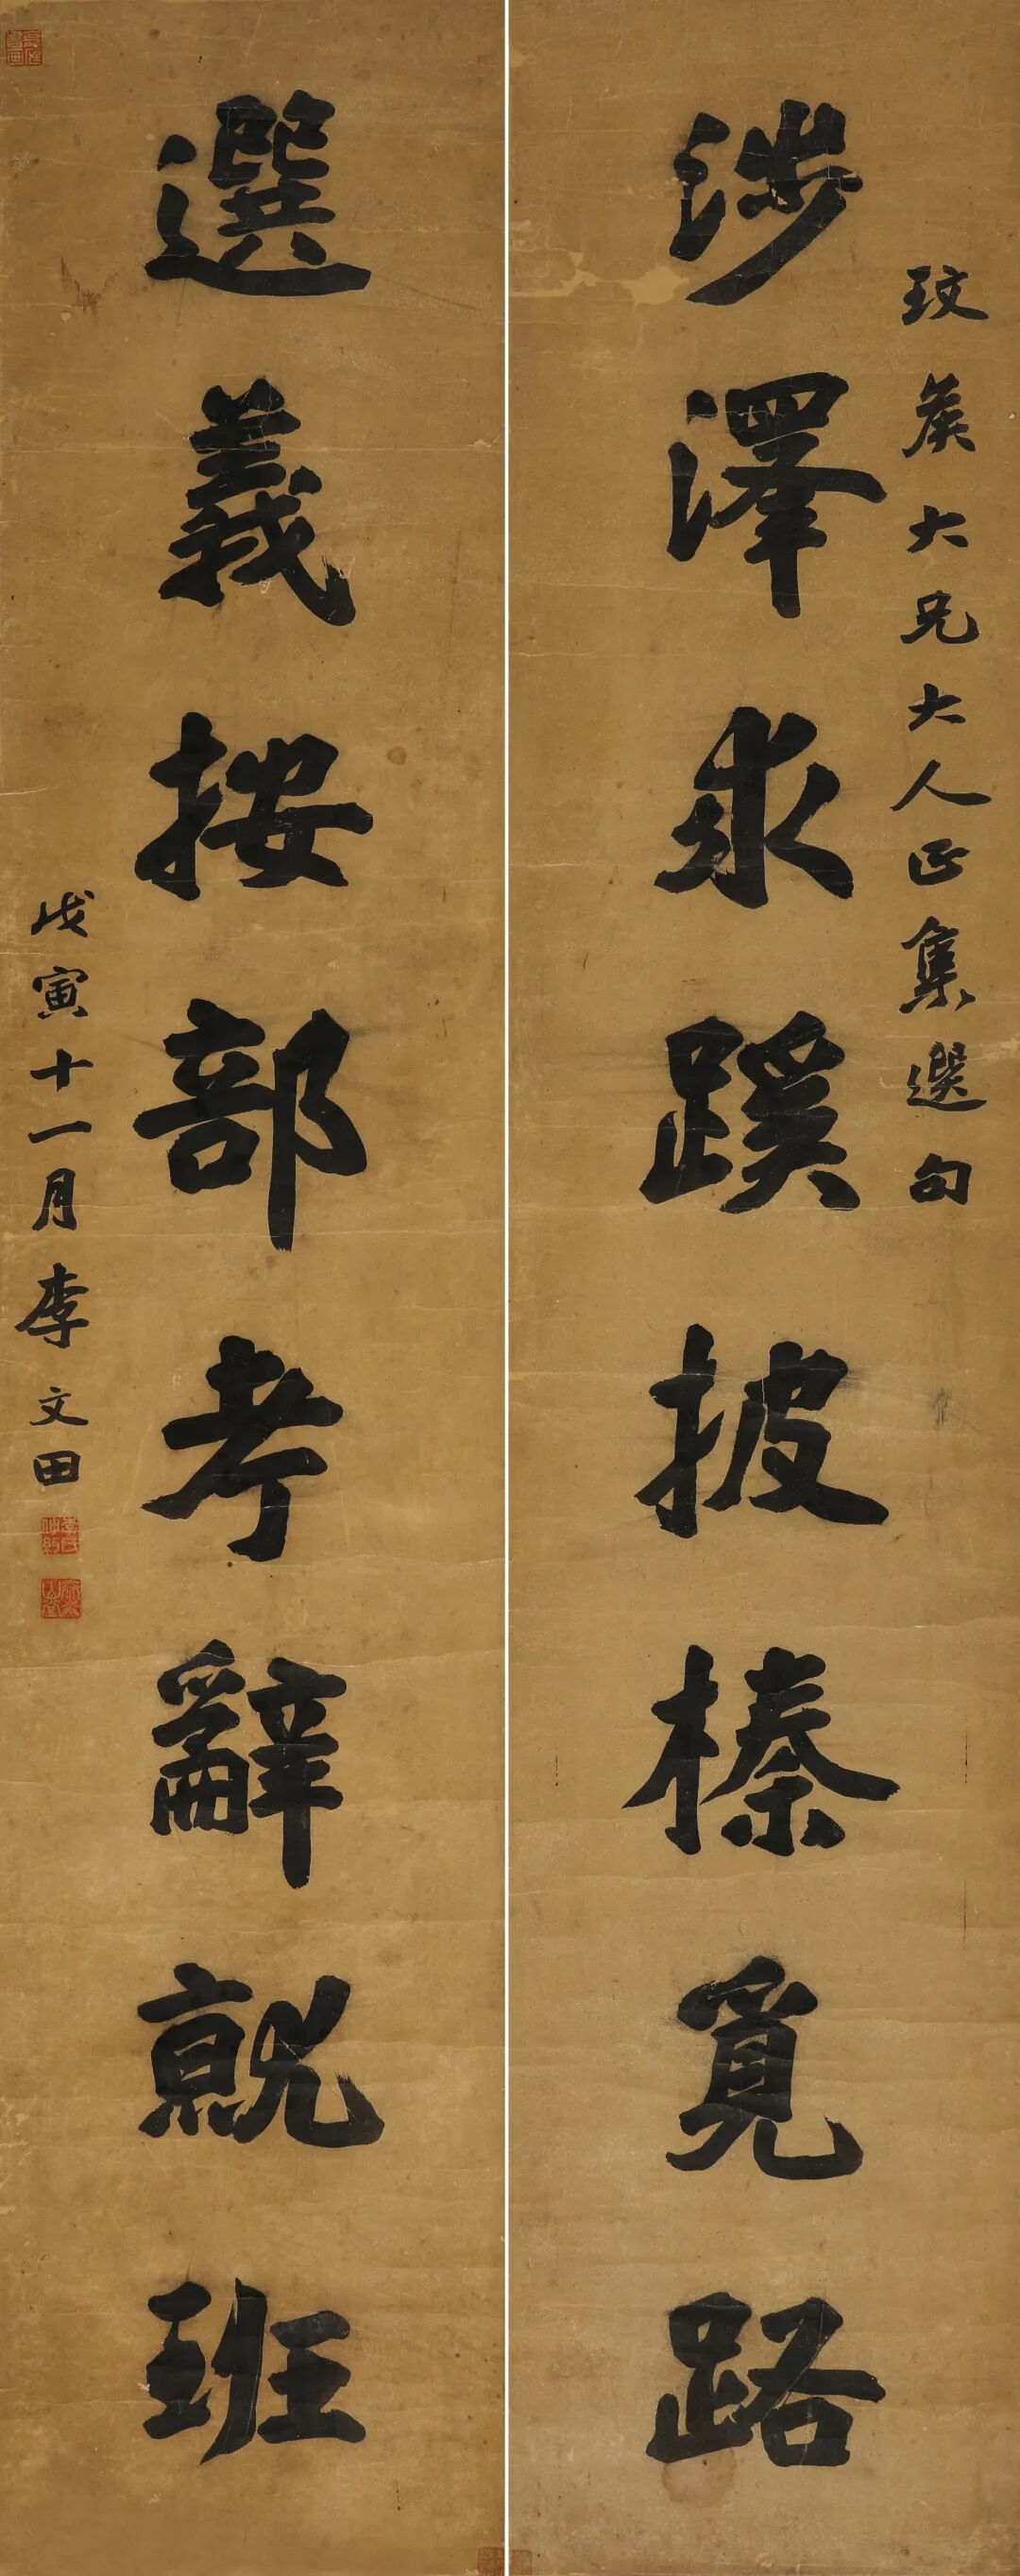 玟矦大兄大人正集選句
涉澤求蹊披榛覓路
選義按部考辭就班
戊寅十一月李文田